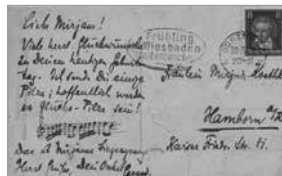 Liebe Mirjam!
Viele herzl. Glückwünsche
zu Deinem heutigen Geburts-
tag. Ich sende Dir einige
Pilze; hoffentlich werden
es Glücks-Pilze sein!
Das ist Mirjams
Herzl. Grüße, Dein Onkel
Frühling
Wiesbaden
Fräulein Mirjam
Hamborn a/Rh
Kaiser Friedr. Str.